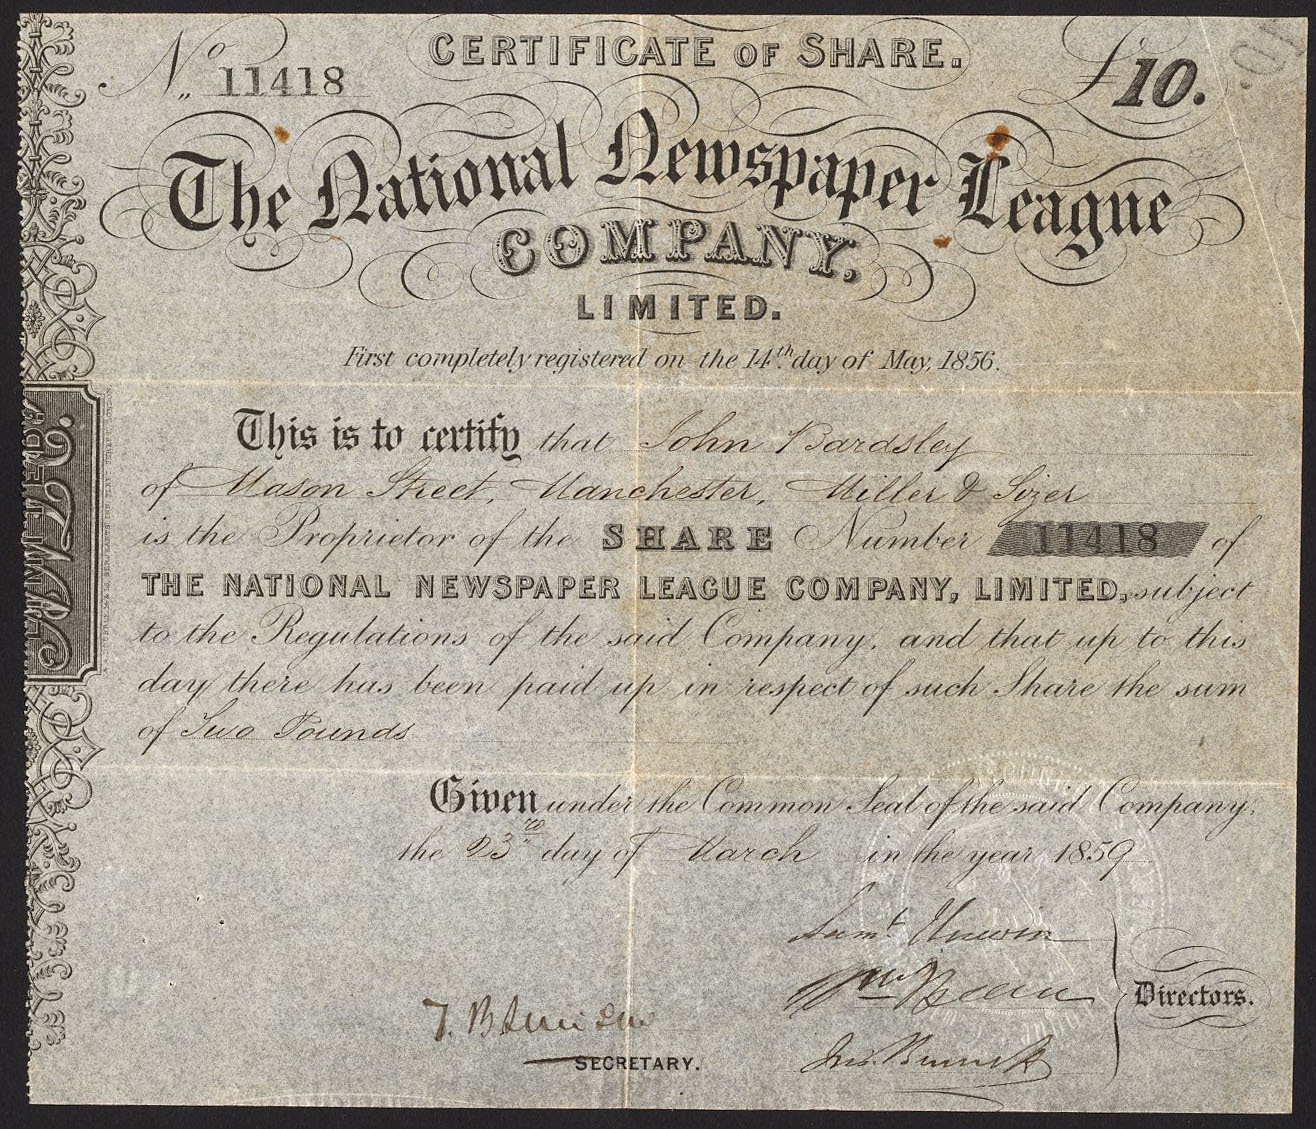 CERTIFICATE OF SHARE.
No 11418
£10.
The National Newspaper League
COMPANY.
LIMITED.
First completely registered on the 14th day of May, 1856.
This is to certify that John Bardsley
of Mason Street, Manchester, Miller & Sizer
is the Proprietor of the SHARE Number 11418 of
THE NATIONAL NEWSPAPER LEAGUE COMPANY, LIMITED, subject
to the Regulations of the said Company, and that up to this
day there has been paid up in respect of such Share the sum
of Two Pounds
Given under the Common Seal of the said Company,
the 23rd day of March in the year 1859
Saml Unwin
Directors.
SECRETARY.